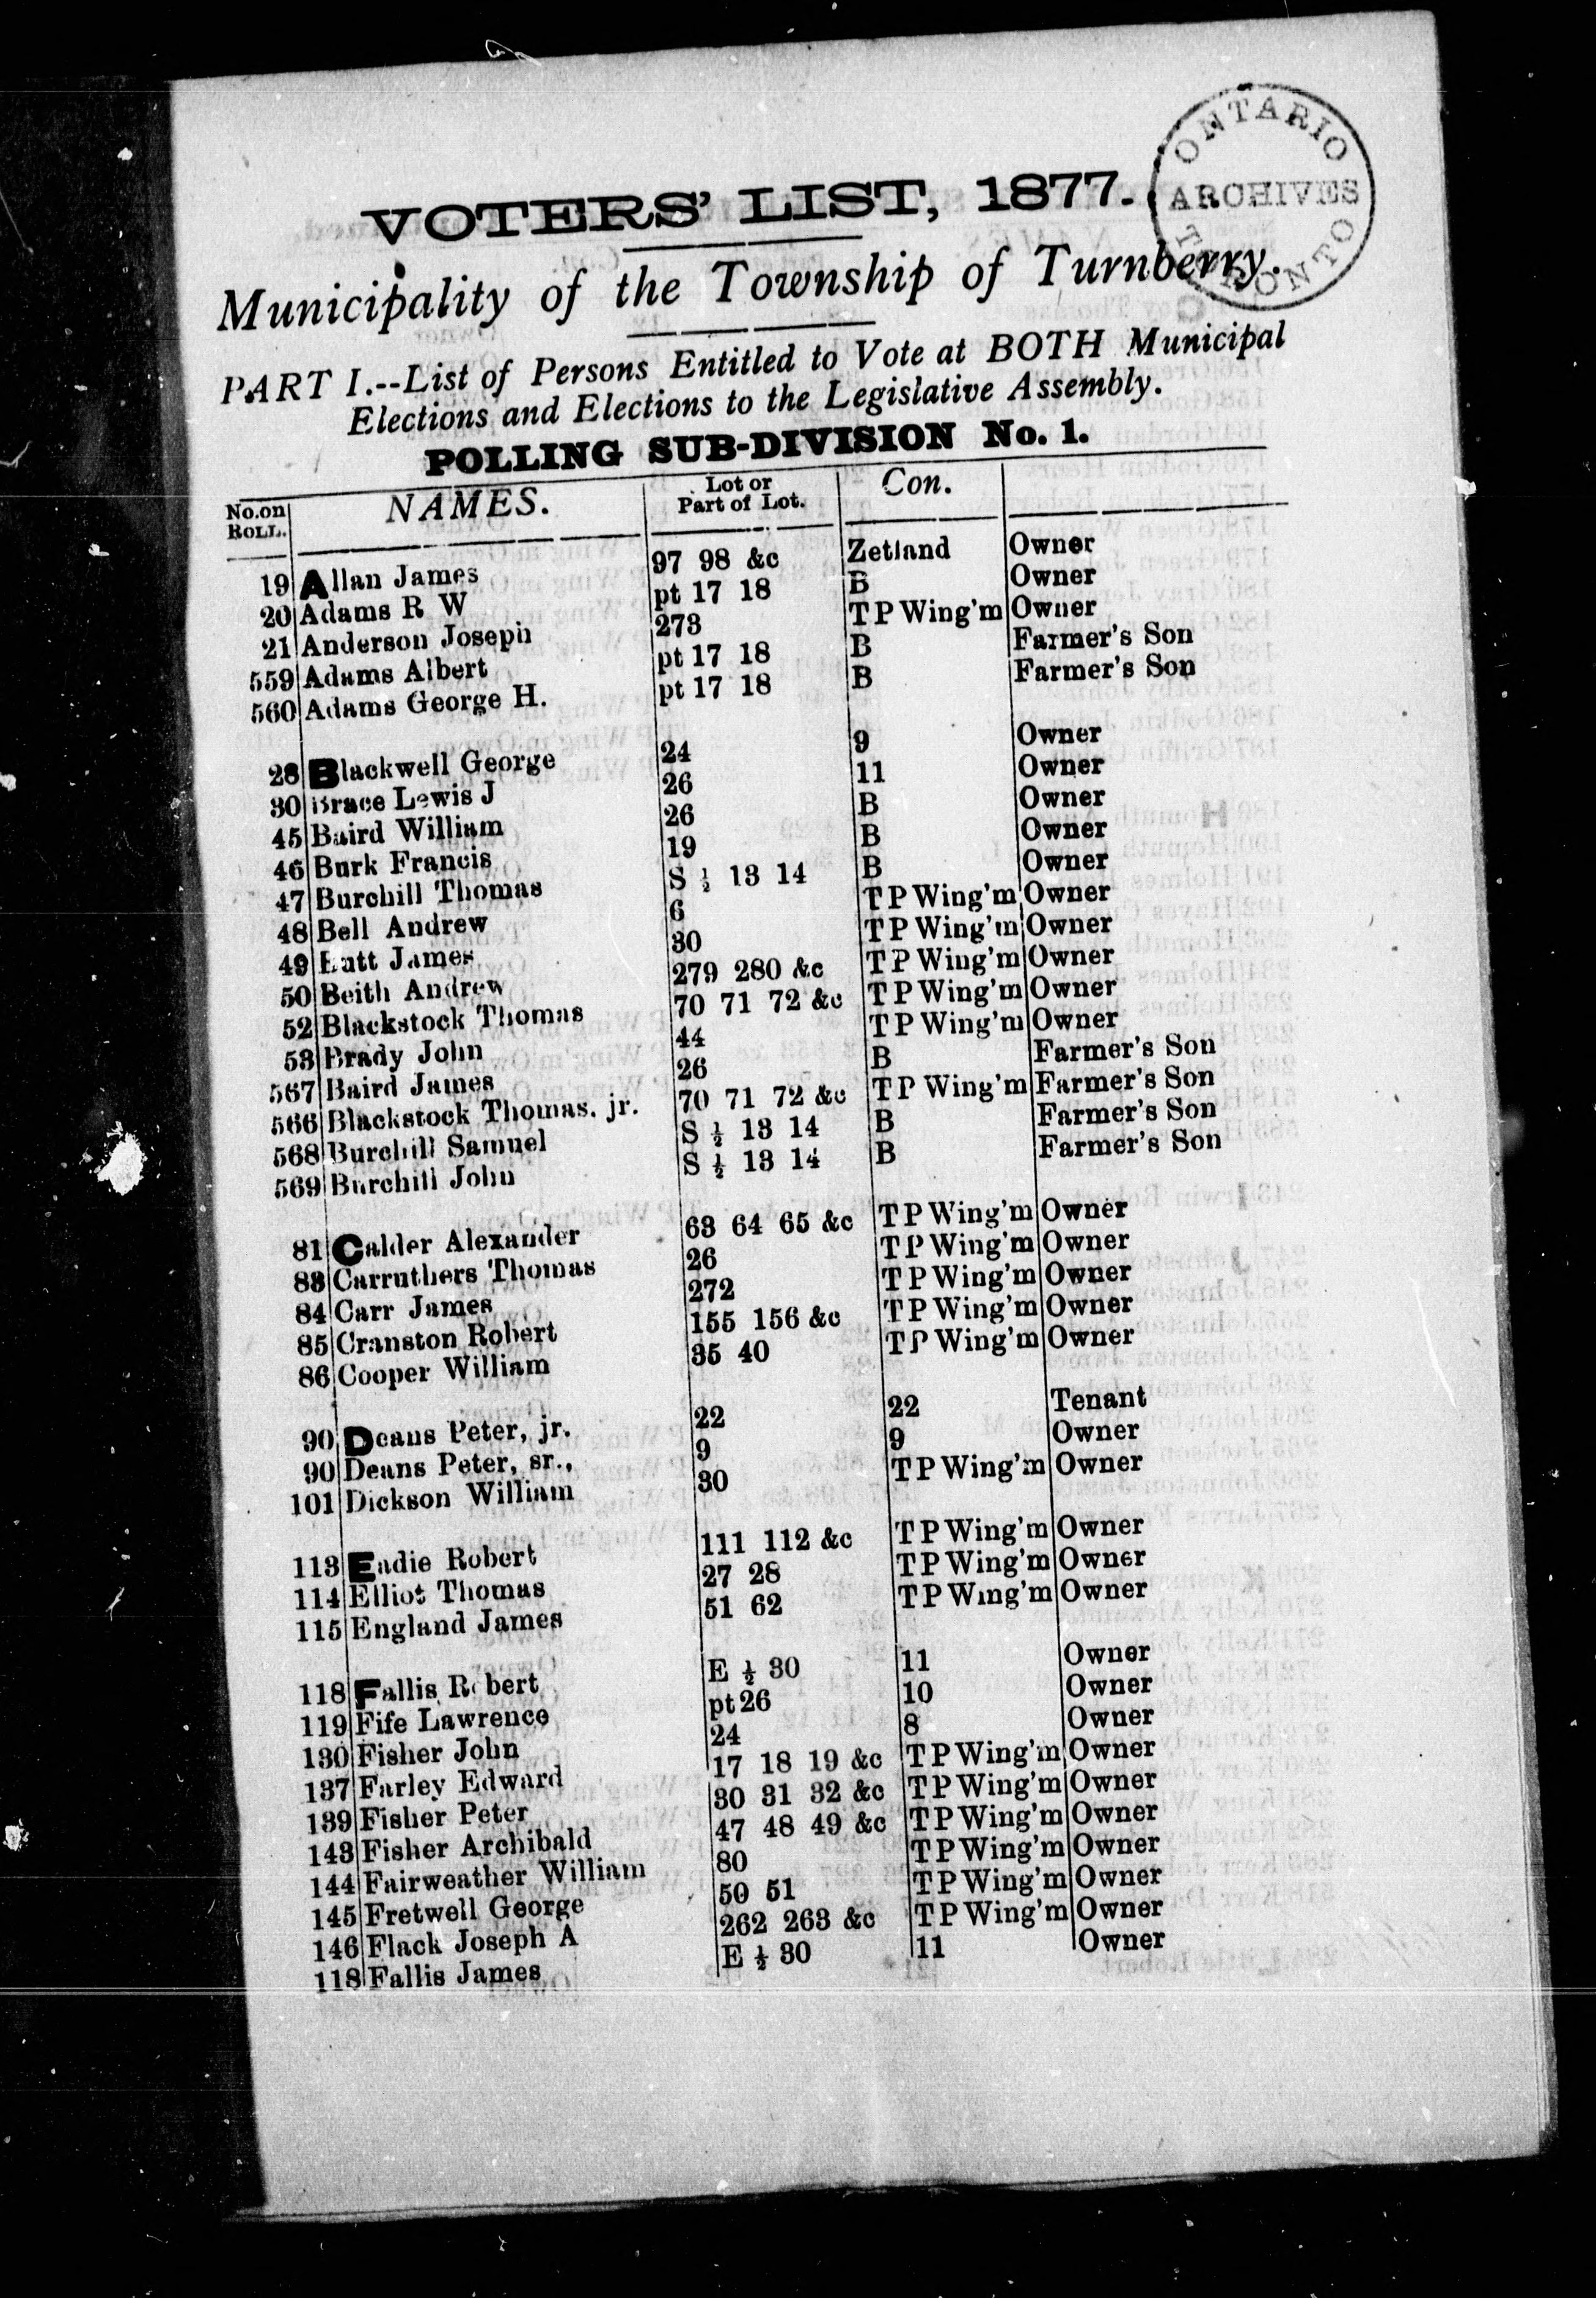 ONTARIO
ARCHIVES
TORONTO
VOTERS' LIST, 1877.
Municipality of the Township of Turnberry.
PART I.--List of Persons Entitled to Vote at BOTH Municipal
Elections and Elections to the Legislative Assembly.
POLLING SUB-DIVISION No. 1.
No. on ROLL. NAMES. Lot or Part of Lot. Con.
19 Allan James 97 98 &c Zetland Owner
20 Adams R W pt 17 18 B Owner
21 Anderson Joseph 273 T P Wing'm Owner
559 Adams Albert pt 17 18 B Farmer's Son
560 Adams George H. pt 17 18 B Farmer's Son
28 Blackwell George 24 9 Owner
30 Brace Lewis J 26 11 Owner
45 Baird William 26 B Owner
46 Burk Francis 19 B Owner
47 Burchill Thomas S ½ 13 14 B Owner
48 Bell Andrew 6 T P Wing'm Owner
49 Butt James 30 T P Wing'm Owner
50 Beith Andrew 279 280 &c T P Wing'm Owner
52 Blackstock Thomas 70 71 72 &c T P Wing'm Owner
53 Brady John 44 T P Wing'm Owner
567 Baird James 26 B Farmer's Son
566 Blackstock Thomas. jr. 70 71 72 &c T P Wing'm Farmer's Son
568 Burchill Samuel S ½ 13 14 B Farmer's Son
569 Burchill John S ½ 13 14 B Farmer's Son
81 Calder Alexander 63 64 65 &c T P Wing'm Owner
83 Carruthers Thomas 26 T P Wing'm Owner
84 Carr James 272 T P Wing'm Owner
85 Cranston Robert 155 156 &c T P Wing'm Owner
86 Cooper William 35 40 T P Wing'm Owner
90 Deans Peter, jr. 22 22 Tenant
90 Deans Peter, sr., 9 9 Owner
101 Dickson William 30 T P Wing'm Owner
113 Eadie Robert 111 112 &c T P Wing'm Owner
114 Elliot Thomas 27 28 T P Wing'm Owner
115 England James 51 62 T P Wing'm Owner
118 Fallis Robert E ½ 30 11 Owner
119 Fife Lawrence pt 26 10 Owner
130 Fisher John 24 8 Owner
137 Farley Edward 17 18 19 &c T P Wing'm Owner
139 Fisher Peter 30 31 32 &c T P Wing'm Owner
143 Fisher Archibald 47 48 49 &c T P Wing'm Owner
144 Fairweather William 80 T P Wing'm Owner
145 Fretwell George 50 51 T P Wing'm Owner
146 Flack Joseph A 262 263 &c T P Wing'm Owner
118 Fallis James E ½ 30 11 Owner